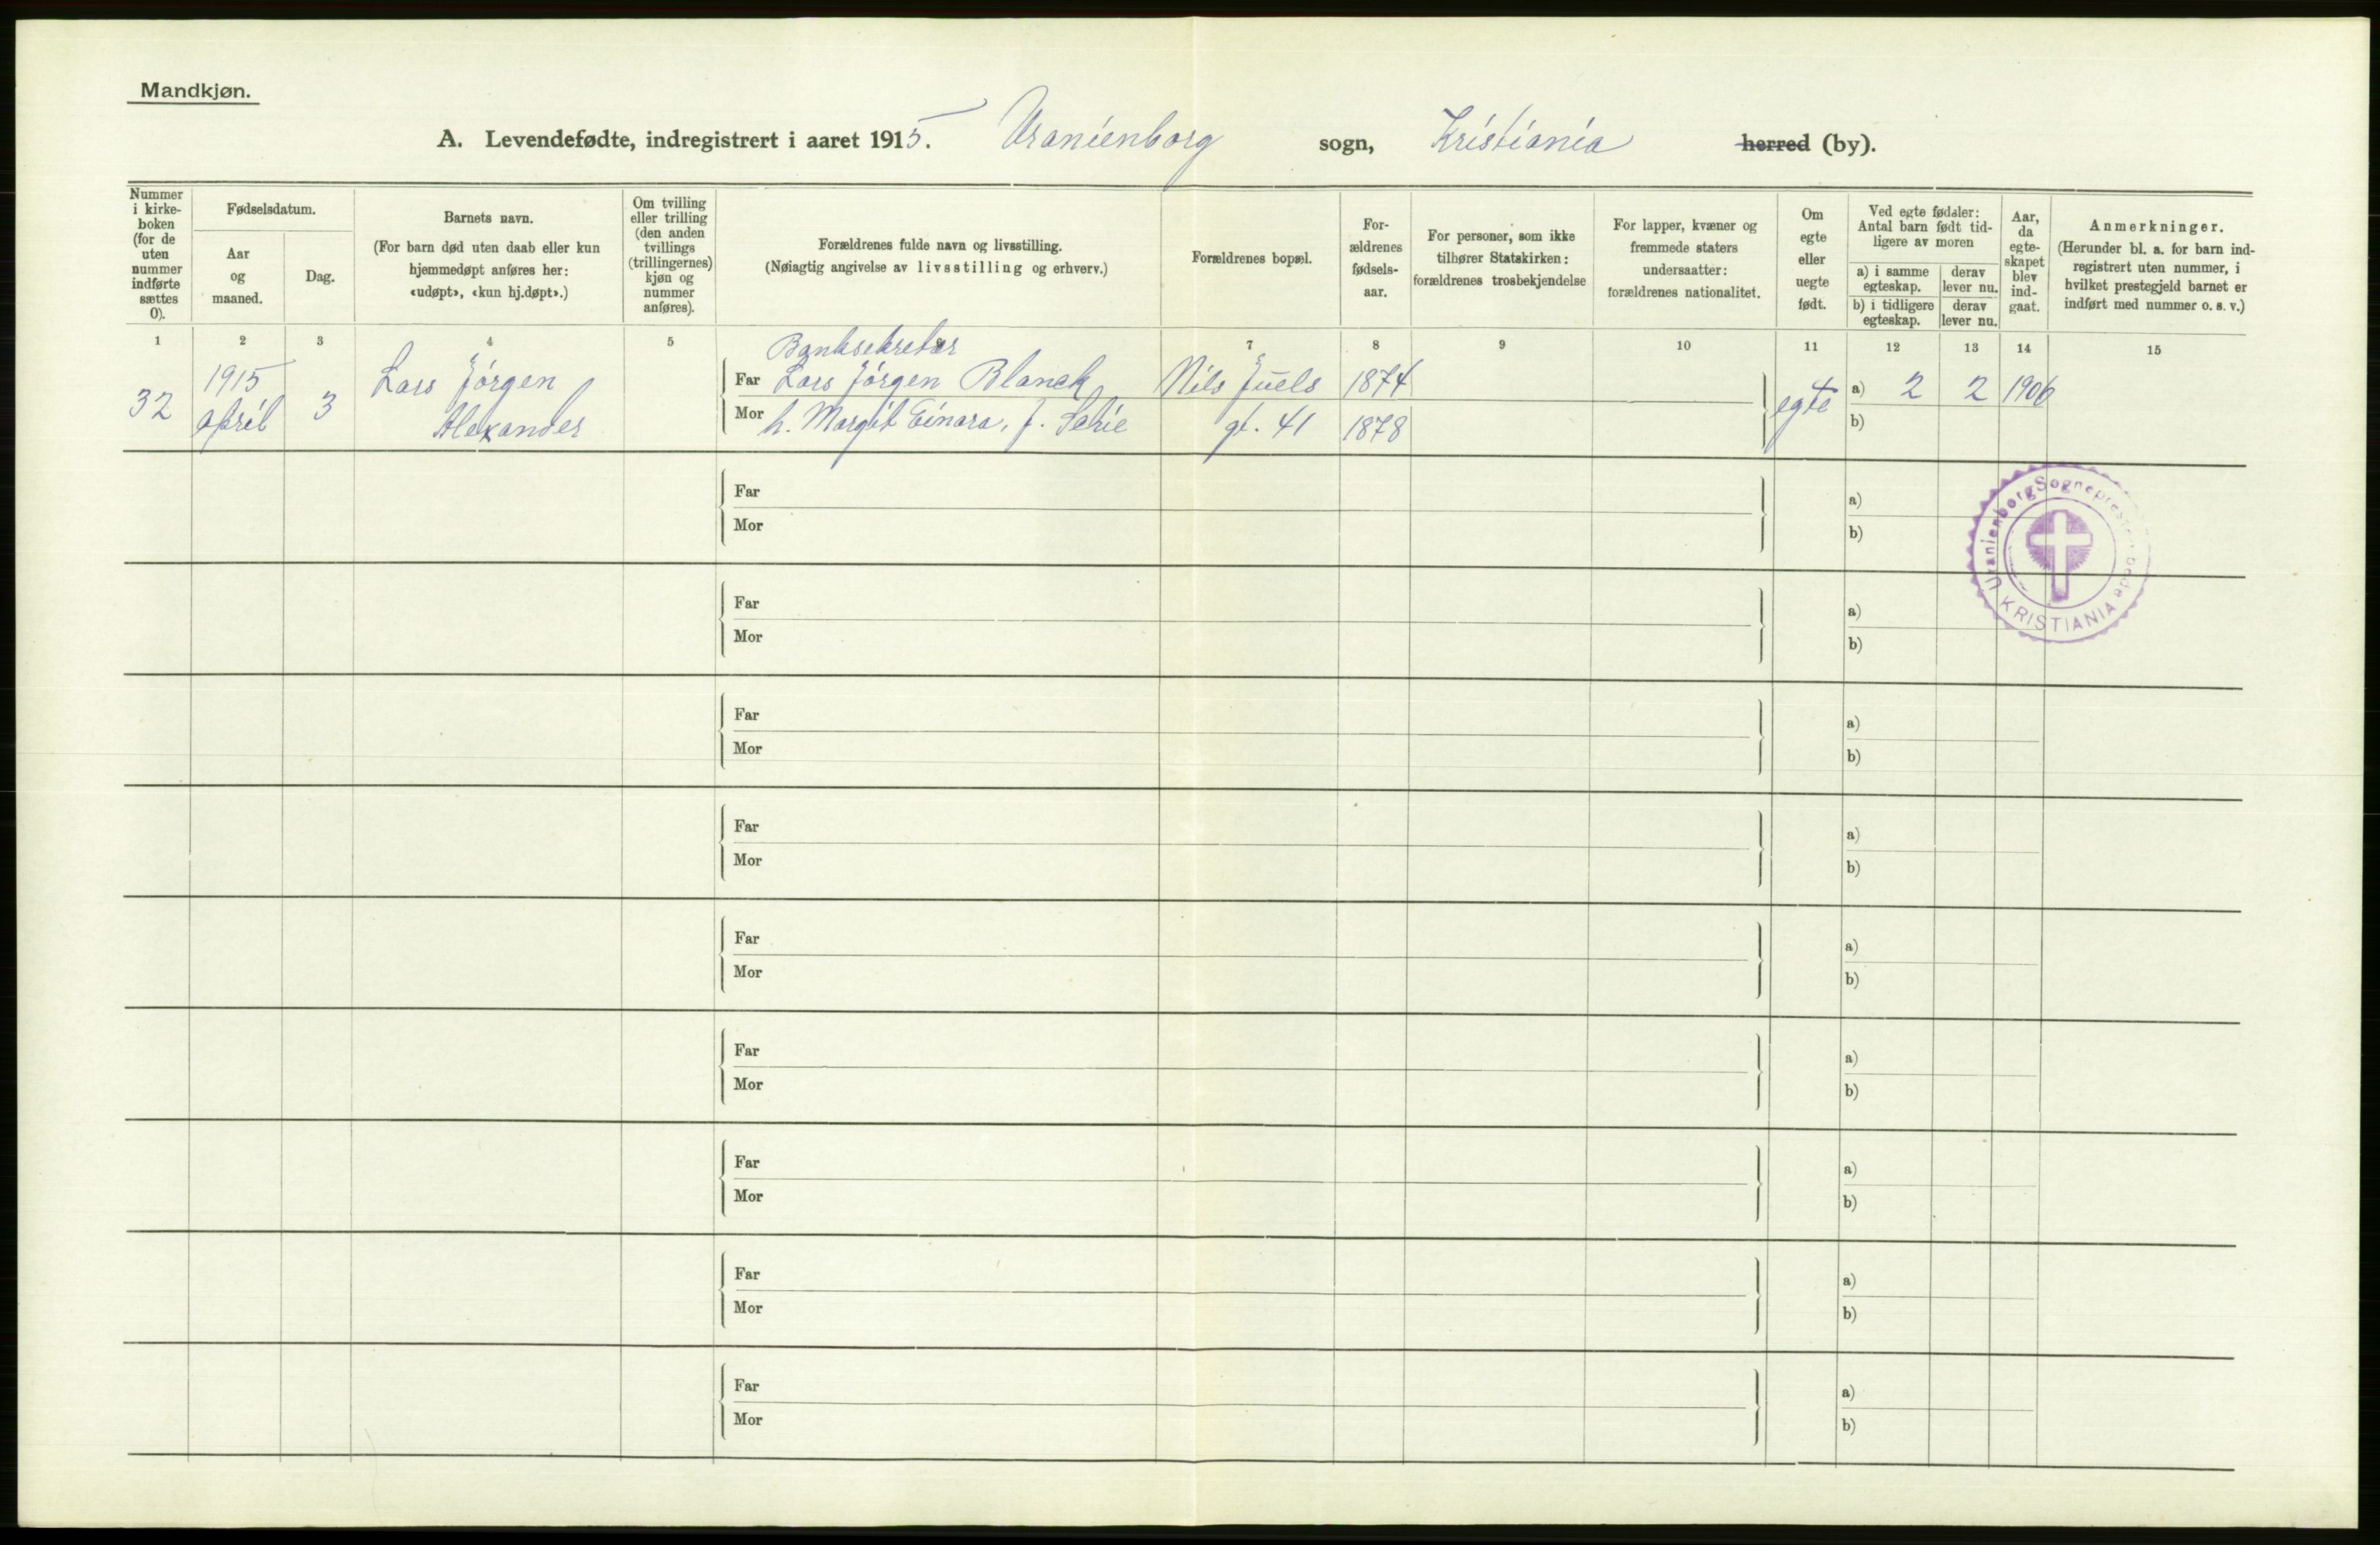 Mandkjøn.
A. Levendefødte, indregistrert i aaret 1915. Uranienborg sogn, Kristiania herred (by).
Nummer i kirke- boken (for de uten nummer indførte sættes 0).
Fødselsdatum.
Aar og maaned.
Dag.
Barnets navn.
(For barn død uten daab eller kun hjemmedøpt anføres her: «udøpt», «kun hj.døpt».)
Om tvilling eller trilling (den anden tvillings (trillingernes) kjøn og nummer anføres).
Forældrenes fulde navn og livsstilling.
(Nøiagtig angivelse av livsstilling og erhverv.)
Forældrenes bopæl.
For- ældrenes fødsels- aar.
For personer, som ikke tilhører Statskirken: forældrenes trosbekjendelse
For lapper, kvæner og fremmede staters undersaatter: forældrenes nationalitet.
Om egte eller uegte født.
Ved egte fødsler: Antal barn født tid- ligere av moren
a) i samme egteskap.
derav lever nu.
b) i tidligere egteskap.
derav lever nu.
Aar, da egte- skapet blev ind- gaat.
Anmerkninger.
(Herunder bl. a. for barn ind- registrert uten nummer, i hvilket prestegjeld barnet er indført med nummer o. s. v.)
1 2 3 4 5 6 7 8 9 10 11 12 13 14 15
Banksekretær
32 1915 april 3 Lars Jörgen Alexander
Far Lars Jörgen Blanck Nils Juels 1874 egte a) 2 2 1906
Mor h. Margit Einara, f. gt. 41 1878 b)
Far a)
Mor b)
Far a)
Mor b)
Far a)
Mor b)
Far a)
Mor b)
Far a)
Mor b)
Far a)
Mor b)
Far a)
Mor b)
Far a)
Mor b)
Far a)
Mor b)
Uranienborg
KRISTIANIA